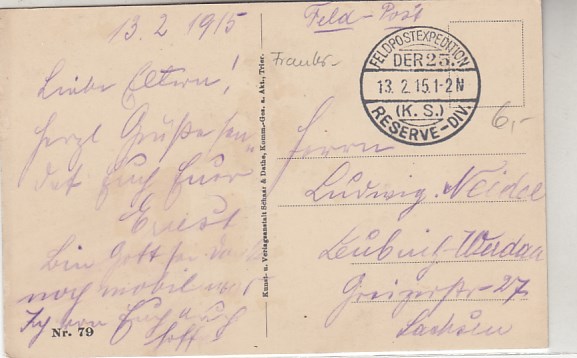 13.2.1915
Liebe Eltern!
Herzl. Grüße sen-
det Euch Euer
Ernst
bin Gott sei Dank
noch mobil was
Ich von Euch auch
hoffe
Nr. 79
Kunst- u. Verlagsanstalt Schaar & Dathe, Komm.-Ges. a. Akt., Trier.
Feld-Post
FELDPOSTEXPEDITION
DER 25.
13. 2. 15. 1-2 N
(K. S.)
RESERVE-DIV.
6,-
Herrn
Ludwig Neidel
Leubnitz-Werdau
27
Sachsen